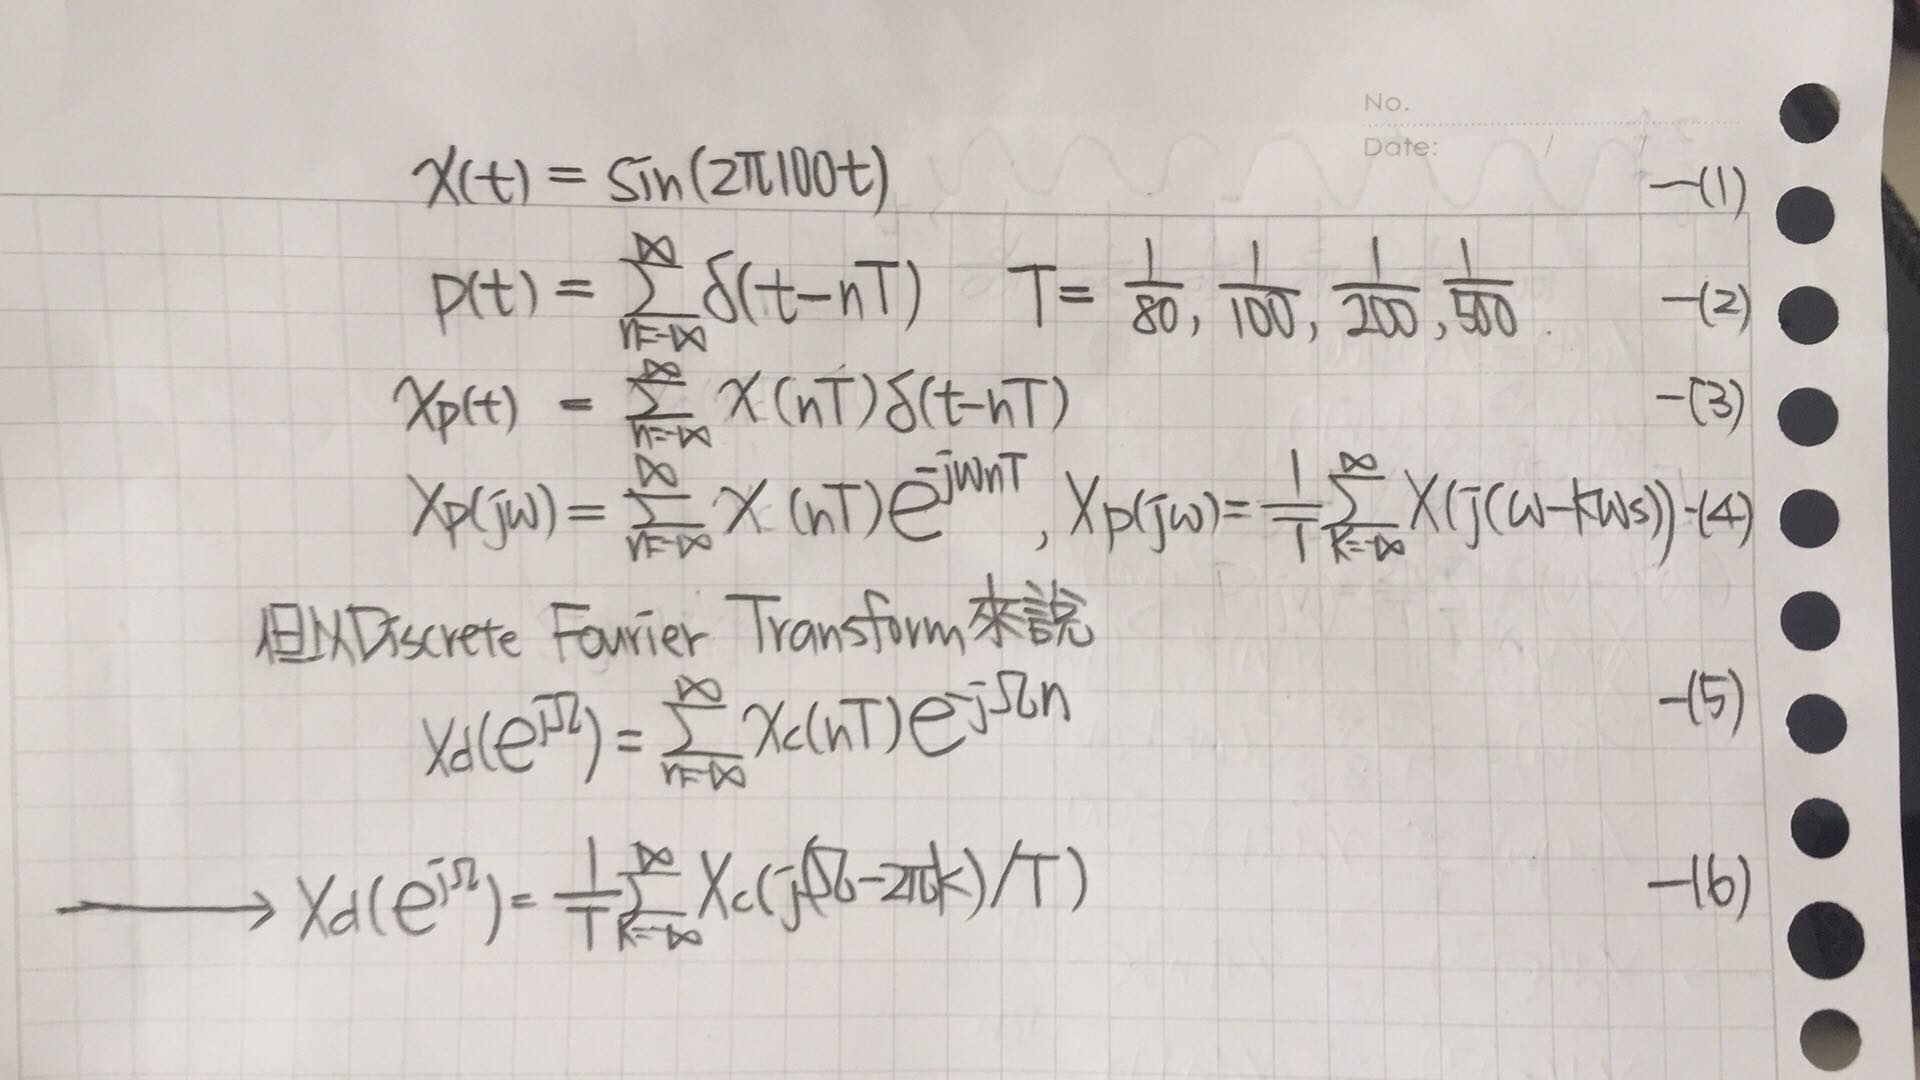 No.
Date: / /
x(t) = sin(2π100t) —(1)
p(t) = ∑_{n=-∞}^{∞} δ(t-nT) T = 1/80, 1/100, 1/200, 1/500. —(2)
xp(t) = ∑_{n=-∞}^{∞} x(nT)δ(t-nT) —(3)
Xp(jω) = ∑_{n=-∞}^{∞} x(nT)e^{-jωnT}, Xp(jω) = 1/T ∑_{k=-∞}^{∞} X(j(ω-kωs)) -(4)
但以Discrete Fourier Transform來說
Xd(e^{jΩ}) = ∑_{n=-∞}^{∞} xc(nT)e^{-jΩn} —(5)
→ Xd(e^{jΩ}) = 1/T ∑_{k=-∞}^{∞} Xc(j(Ω-2πk)/T) —(6)